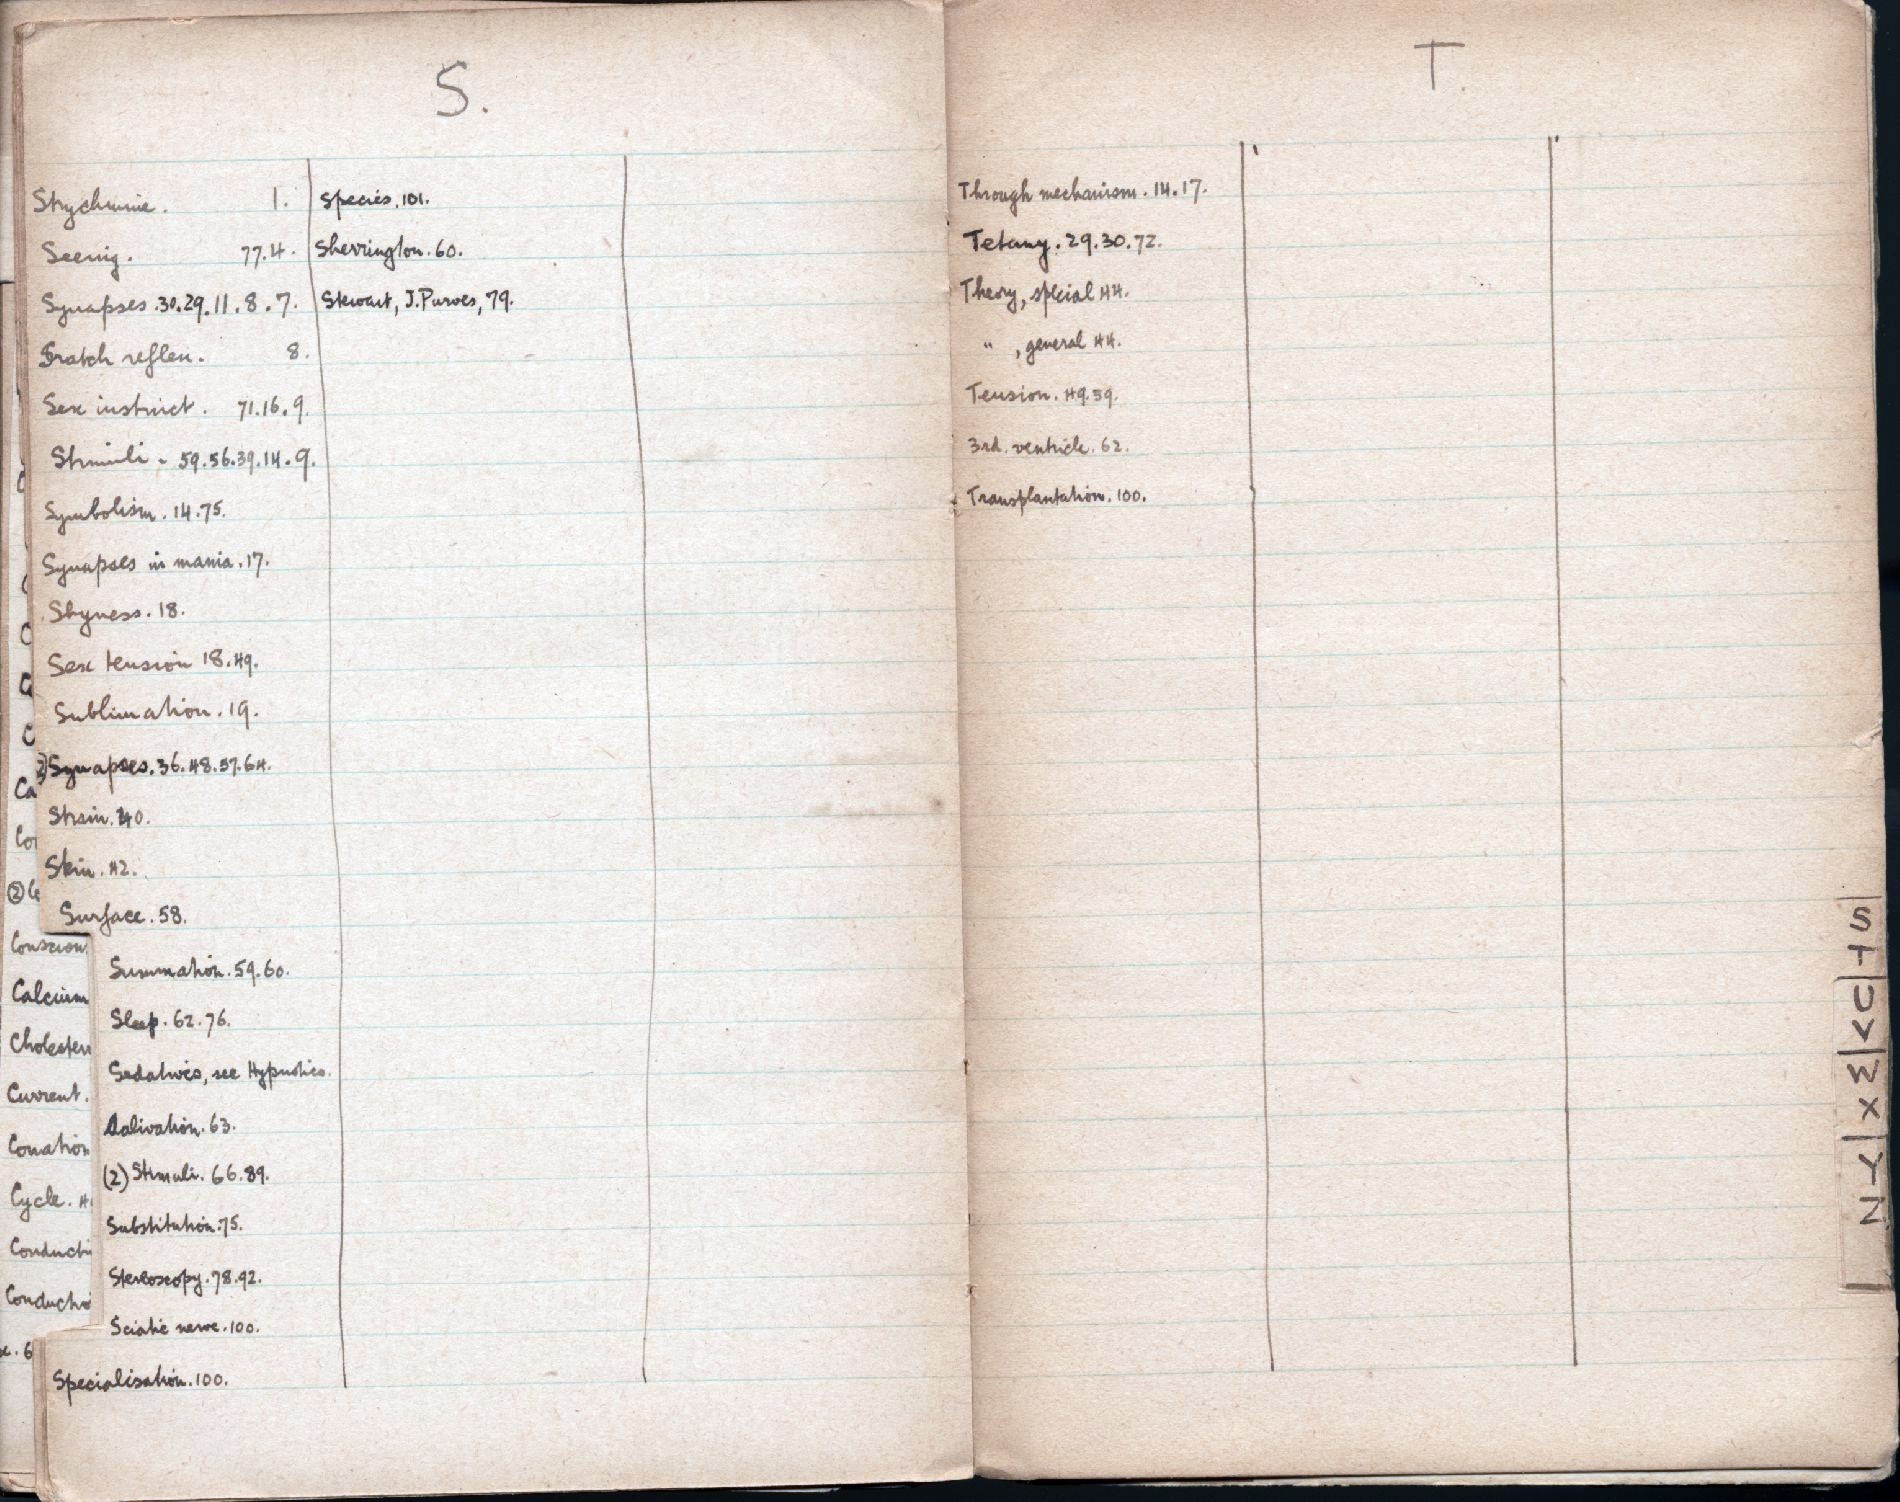 S.
Strychnine. 1.
Seeing. 77.4.
Synapses. 30.29.11.8.7.
Scratch reflex. 8.
Sex instinct. 71.16.9.
Stimuli. 59.56.39.14.9.
Symbolism. 14.75.
Synapses in mania. 17.
Shyness. 18.
Sex tension 18.49.
Sublimation. 19.
2) Synapses. 36.48.57.64.
Strain. 40.
Skin. 42.
Surface. 58.
Summation. 59.60.
Sleep. 62.76.
Sedatives, see Hypnotics.
Salivation. 63.
(2) Stimuli. 66.89.
Substitution. 75.
Stereoscopy. 78.92.
Sciatic nerve. 100.
Specialisation. 100.
Species. 101.
Sherrington. 60.
Stewart, J. Purves, 79.
Ca
②
Conscion
Calcium
Cholester
Current.
Conation
Cycle.
Conducti
Conducti
6
T.
Through mechanism. 14.17.
Tetany. 29.30.72.
Theory, special 44.
" , general 44.
Tension. 49.59.
3rd. ventricle. 62.
Transplantation. 100.
S
T
U
V
W
X
Y
Z